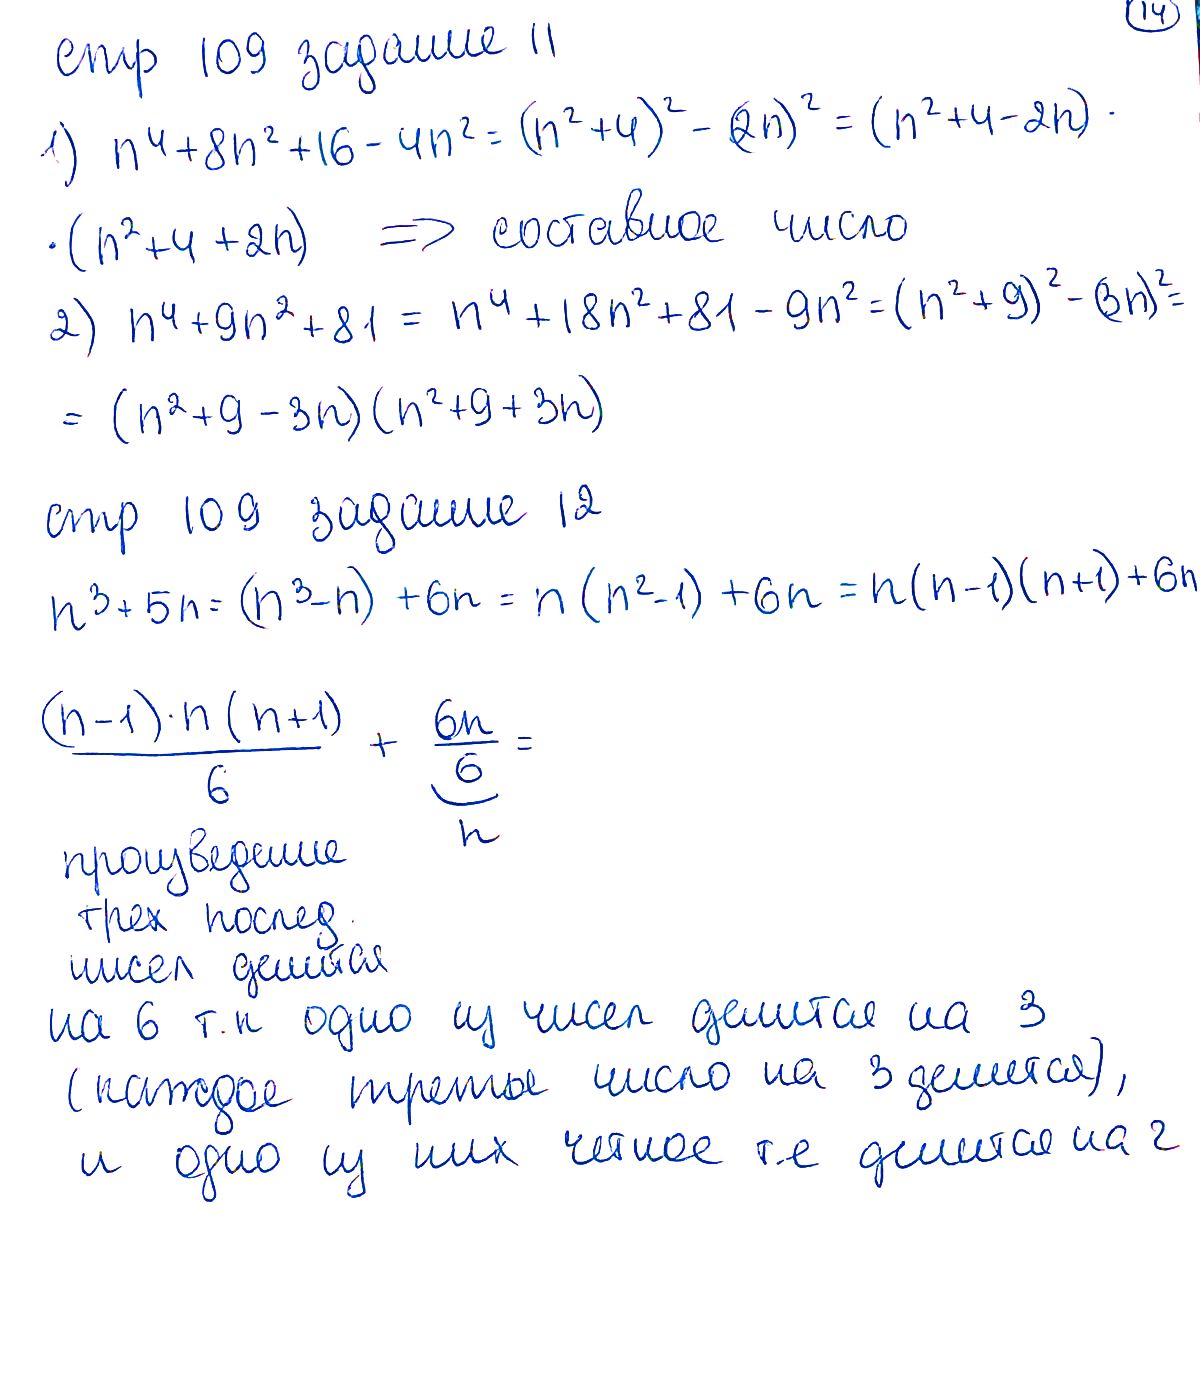 14
стр 109 задание 11
1) n⁴+8n²+16-4n²=(n²+4)²-(2n)²=(n²+4-2n)·
·(n²+4+2n) => составное число
2) n⁴+9n²+81 = n⁴+18n²+81-9n²=(n²+9)²-(3n)²=
= (n²+9-3n)(n²+9+3n)
стр 109 задание 12
n³+5n=(n³-n)+6n=n(n²-1)+6n=n(n-1)(n+1)+6n
(n-1)·n(n+1)/6 + 6n/6 =
n
произведение
трех послед.
чисел делится
на 6 т.к одно из чисел делится на 3
(каждое третье число на 3 делится),
и одно из них четное т.е делится на 2